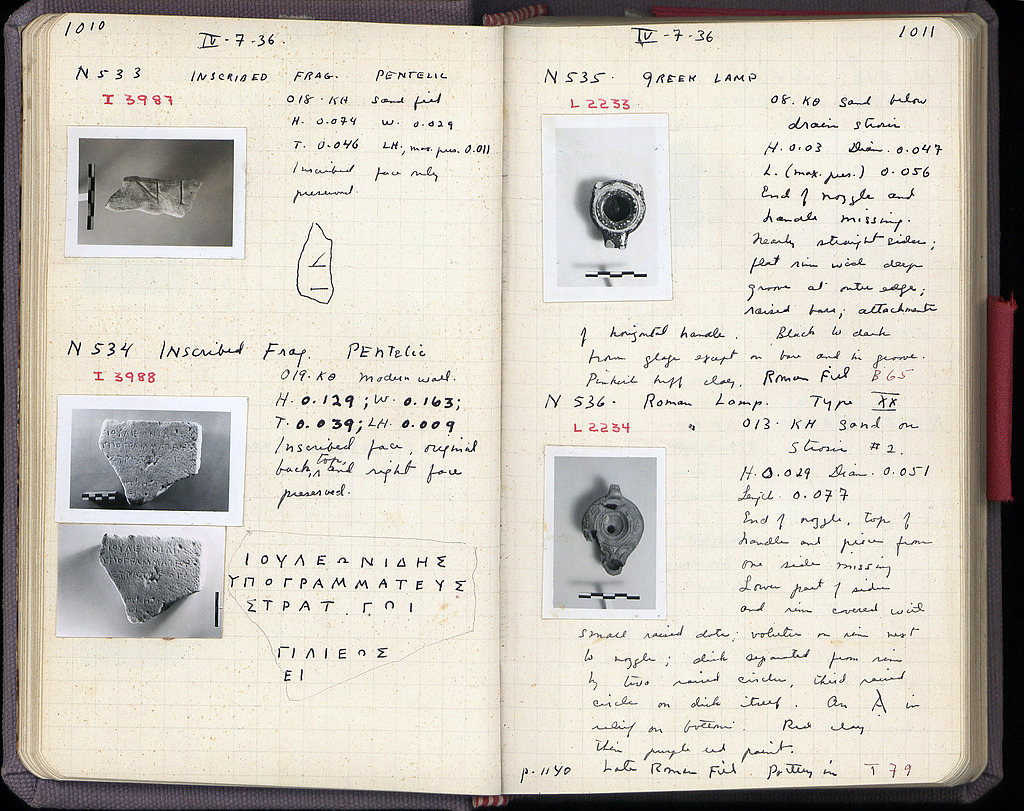 1010
IV-7-36.
N 533 INSCRIBED FRAG. PENTELIC
I 3987
018·KH sand fill
H. 0.074 W. 0.029
T. 0.046 LH, max. pres. 0.011
Inscribed face only
preserved.
N 534 Inscribed Frag. PENTELIC
I 3988
019·KΘ modern wall.
H. 0.129; W. 0.163;
T. 0.039; LH. 0.009
Inscribed face, original
back, top, and right face
preserved.
ΙΟΥΛΕΩΝΙΔΗΣ
ΥΠΟΓΡΑΜΜΑΤΕΥΣ
ΣΤΡΑΤ.ΓΩΙ
ΓΙΛΙΕΩΣ
ΕΙ
IV-7-36
1011
N 535· GREEK LAMP
L 2233
08·KΘ sand below
drain strosis
H. 0.03 Diam. 0.047
L. (max. pres.) 0.056
End of nozzle and
handle missing.
Nearly straight sides;
flat rim with deep
groove at outer edge;
raised base; attachments
of horizontal handle. Black to dark
brown glaze except on base and in groove.
Pinkish buff clay. Roman Fill B 65
N 536· Roman Lamp. Type XX
L 2234
" 013·KH sand on
Strosis #2.
H. 0.029 Diam. 0.051
Length. 0.077
End of nozzle, top of
handle and piece from
one side missing
Lower part of sides
and rim covered with
small raised dots; volutes on rim next
to nozzle; disk separated from rim
by two raised circles, third raised
circle on disk itself. An A in
relief on bottom. Red clay
thin purple red paint.
p. 1140 Late Roman Fill. Pottery in T 79